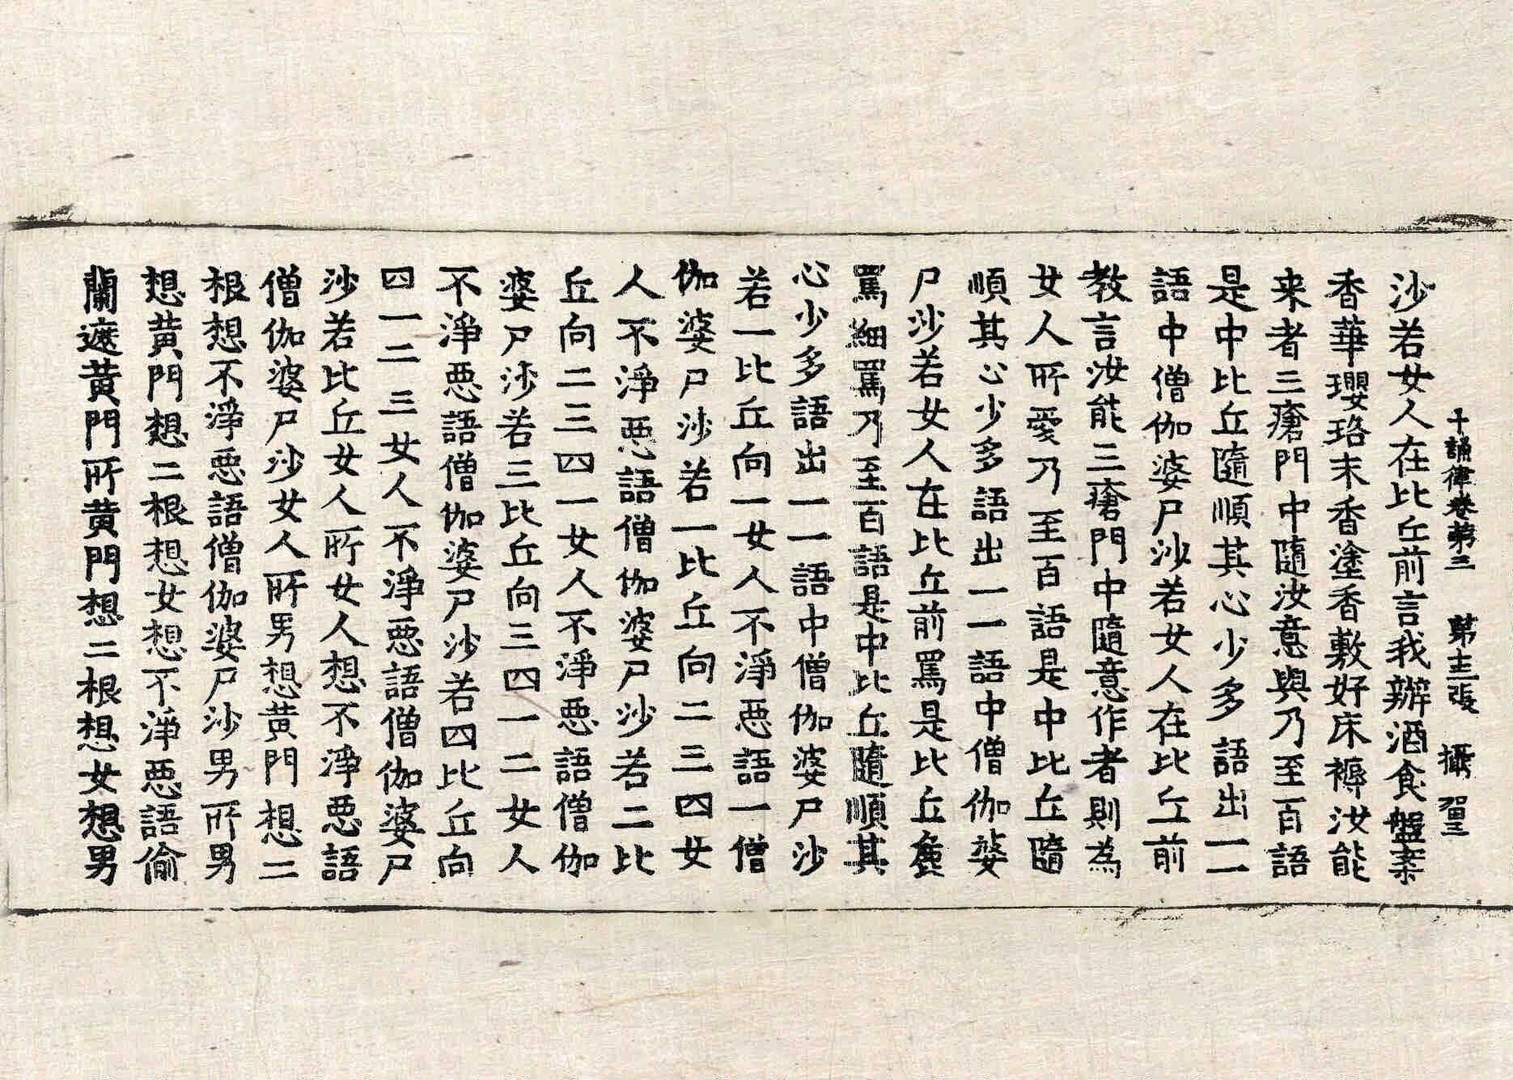 十誦律卷第三　第十三張　攝　習三
沙若女人在比丘前言我辦酒食盤案
香華瓔珞末香塗香敷好床褥汝能
来者三瘡門中隨汝意與乃至百語
是中比丘隨順其心少多語出一一
語中僧伽婆尸沙若女人在比丘前
教言汝能三瘡門中隨意作者則為
女人所愛乃至百語是中比丘隨
順其心少多語出一一語中僧伽婆
尸沙若女人在比丘前罵是比丘麁
罵細罵乃至百語是中比丘隨順其
心少多語出一一語中僧伽婆尸沙
若一比丘向一女人不淨惡語一僧
伽婆尸沙若一比丘向二三四女
人不淨惡語僧伽婆尸沙若二比
丘向二三四一女人不淨惡語僧伽
婆尸沙若三比丘向三四一二女人
不淨惡語僧伽婆尸沙若四比丘向
四一二三女人不淨惡語僧伽婆尸
沙若比丘女人所女人想不淨惡語
僧伽婆尸沙女人所男想黄門想二
根想不淨惡語僧伽婆尸沙男所男
想黄門想二根想女想不淨惡語偷
蘭遮黄門所黄門想二根想女想男